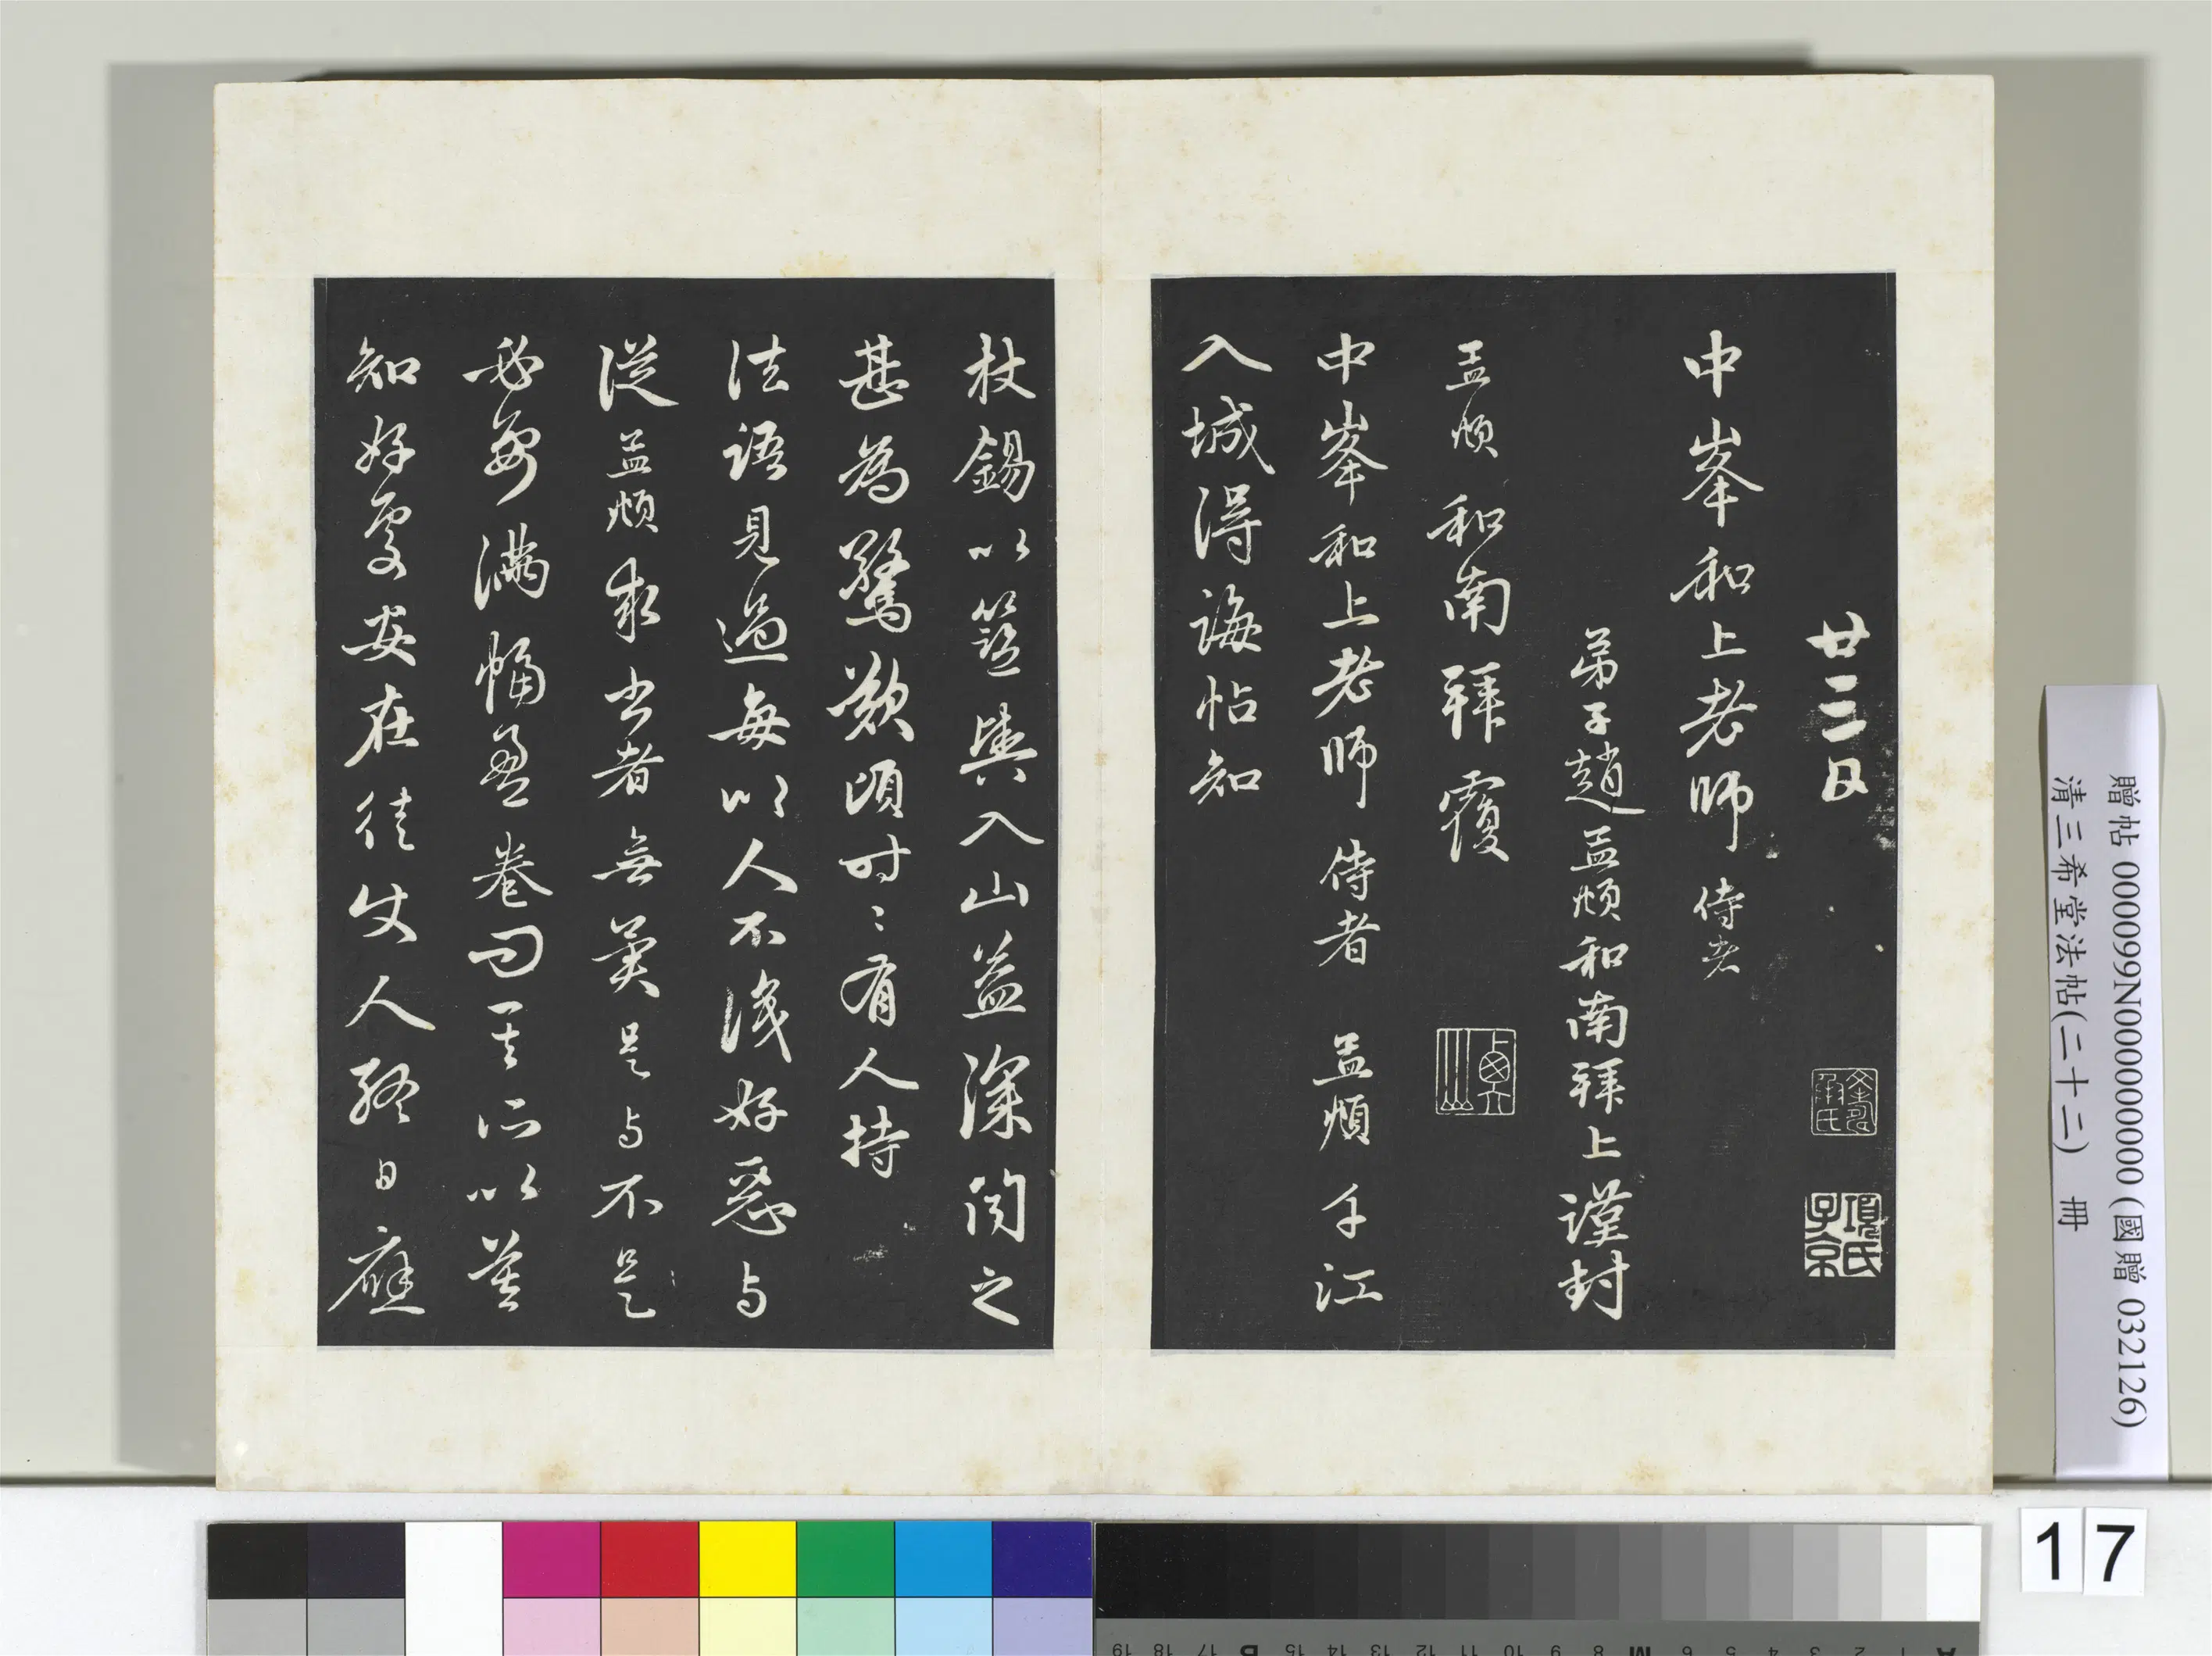 廿三日
中峯和上老師侍者
弟子趙孟頫和南拜上謹封
孟頫和南拜覆
中峯和上老師侍者 孟頫千江
入城得誨帖知
杖錫以籃輿入山益深聞之
甚為驚歎頃時〻有人持
法語見過每以人不識好惡与
從孟頫求書者無異是与不是
必要滿幅盈卷問其所以莫
知好處安在徒使人終日應
項氏子京
贈帖 000099N000000000 (國贈 032126)
清三希堂法帖(二十二) 冊
17